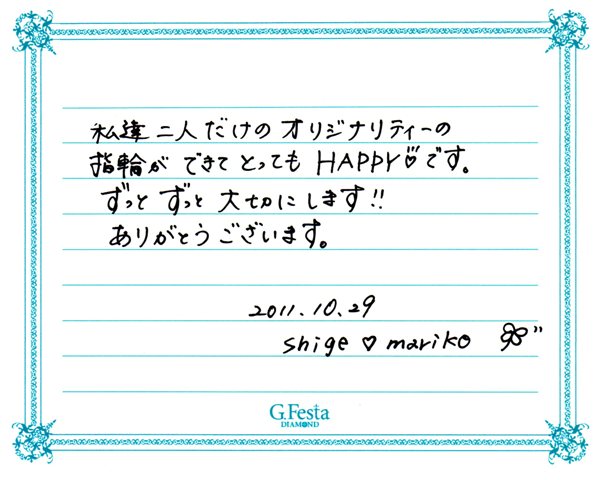 私達 二人だけの オリジナリティーの
指輪が できて とっても HAPPY♡です。
ずっと ずっと 大切にします!!
ありがとうございます。
2011.10.29
shige ♡ mariko
G.Festa
DIAMOND